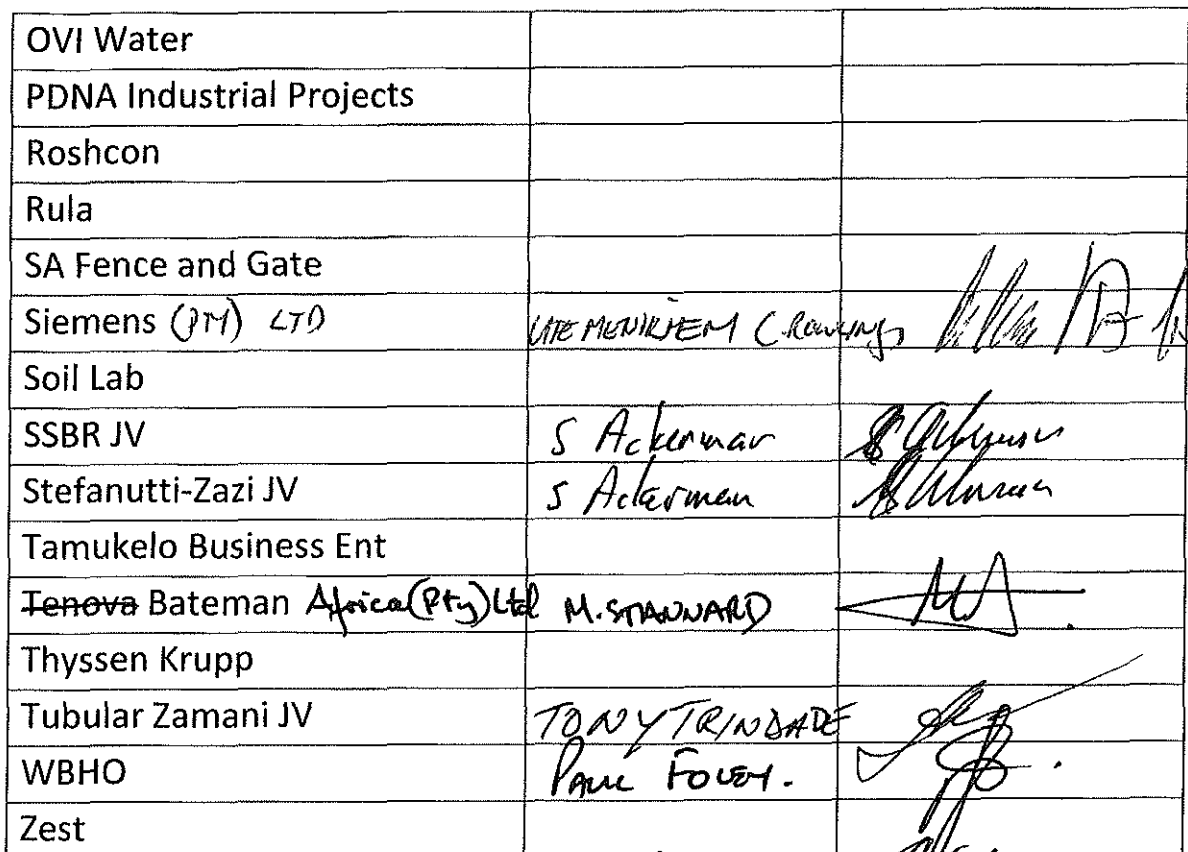 OVI Water
PDNA Industrial Projects
Roshcon
Rula
SA Fence and Gate
Siemens (PM) LTD
Soil Lab
SSBR JV S Ackerman
Stefanutti-Zazi JV S Ackerman
Tamukelo Business Ent
Tenova Bateman Africa (Pty) Ltd M. STANNARD
Thyssen Krupp
Tubular Zamani JV TONY TRINDADE
WBHO PAUL FOLEY.
Zest